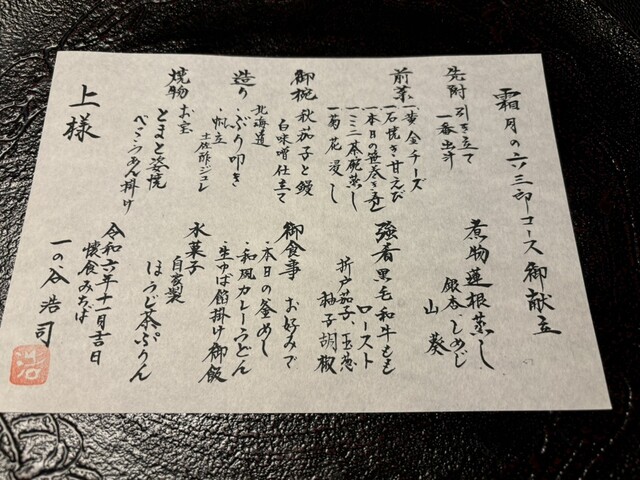 霜月の六三郎コース御献立
先附 引き立て
一番出汁
前菜 一、黄金チーズ
一、石焼き甘えび
一、本日の笹巻き寿し
一、ミニ茶碗蒸し
一、菊花浸し
御椀 秋茄子と鰻
白味噌仕立て
造り 北海道
・ぶり叩き
・帆立
土佐酢ジュレ
焼物 お宝
とまと姿焼
べっこうあん掛け
煮物 蓮根蒸し
銀杏、しめじ
山葵
強肴 黒毛和牛もも
ロースト
折戸茄子、玉葱
柚子胡椒
御食事 お好みで
・本日の釜めし
・和風カレーうどん
・生ゆば餡掛け御飯
水菓子
自家製
ほうじ茶ぷりん
令和六年十一月吉日
懐食みちば
一の谷浩司
上様